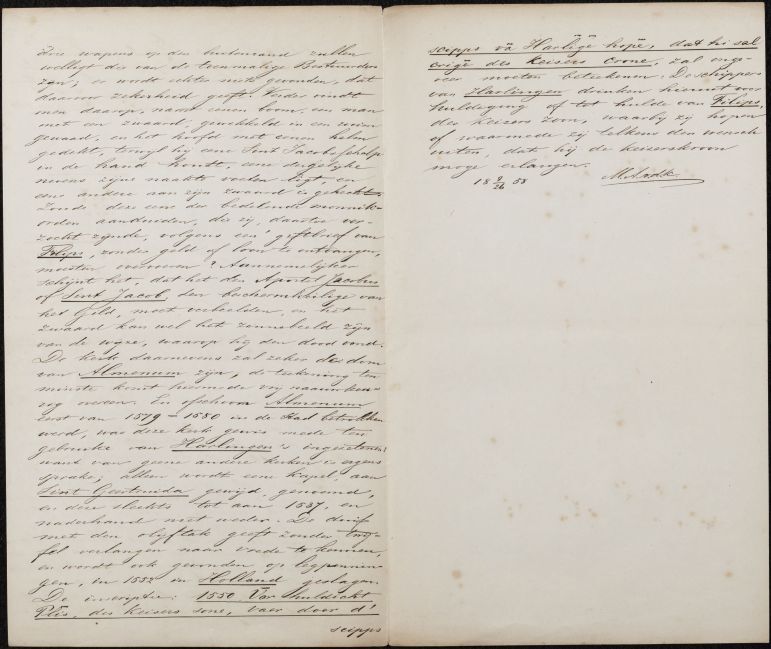 drie wapens op den buitenrand zullen
wellligt die van de toenmalige Bestuurders
zijn; er wordt echter niets gevonden, dat
daarvoor zekerheid geeft. Verder vindt
men daarop, naast eenen boom, een man
met een zwaard, gewikkeld in een ruim
gewaad, en het hoofd met eenen helm
gedekt, terwijl hij eene Sint Jacobs schelp
in de hand houdt, eene dergelijke
nevens zijne naakte voeten ligt, en
eene andere aan zijn zwaard is gehecht.
Zoude deze een der bedelende monnik-
orden aanduiden, die zij, daartoe ver-
zocht zijnde, volgens een' giftbrief van
Filips, zonder geld of loon te ontvangen,
moesten overvoeren? Aannemelijker
schijnt het, dat het den Apostel Jacobus
of Sint Jacob, den beschermheilige van
het Gild, moet verbeelden, en het
zwaard kan wel het zinnebeeld zijn
van de wijze, waarop hij den dood vond.
De kerk daarnevens zal zeker de dom
van Almenum zijn, de teekening ten
minste komt hiermede vrij naauwkeu-
rig overeen. En ofschoon Almenum
eerst van 1579 = 1580 in de Stad betrokken
werd, was deze kerk gewis mede ten
gebruike van Harlingen's ingezetenen,
want van geene andere kerken is ergens
sprake, alleen wordt eene kapel aan
Sint Geertruida gewijd, genoemd,
en deze slechts tot aan 1537, en
naderhand niet weder. De duif
met den olijftak geeft zonder twij-
fel verlangen naar vrede te kennen,
en wordt ook gevonden op legpennin-
gen, in 1552 in Holland geslagen.
De inscriptie: 1550. Var huldicht
Plis, des Keisers sone, vaer door d'
scipps
scipps vā Harlīgē hopē, dat hi sal
crigē des Keisers Crone, zal onge-
veer moeten beteekenen: De schippers
van Harlingen drinken hieruit voor
huldiging of tot hulde van Filips,
des Keisers zoon, waarbij zij hopen
of waarmede zij telkens den wensch
uiten, dat hij de keizerskroon
moge erlangen.
18 9/26 58